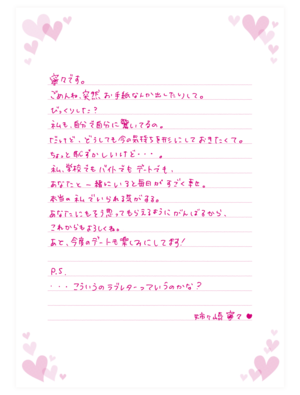 寧々です。
ごめんね、突然、お手紙なんか出したりして。
びっくりした?
私も、自分で自分に驚いてるの。
だけど、どうしても今の気持ちを形にしておきたくて。
ちょっと恥ずかしいけど・・・。
私、学校でもバイトでもデートでも、
あなたと一緒にいると毎日がすごく幸せ。
本当の私でいられる気がする。
あなたにもそう思ってもらえるようにがんばるから、
これからもよろしくね。
あと、今度のデートも楽しみにしてます!
P.S.
・・・こういうのラブレターっていうのかな?
姉ヶ崎 寧々 ♥